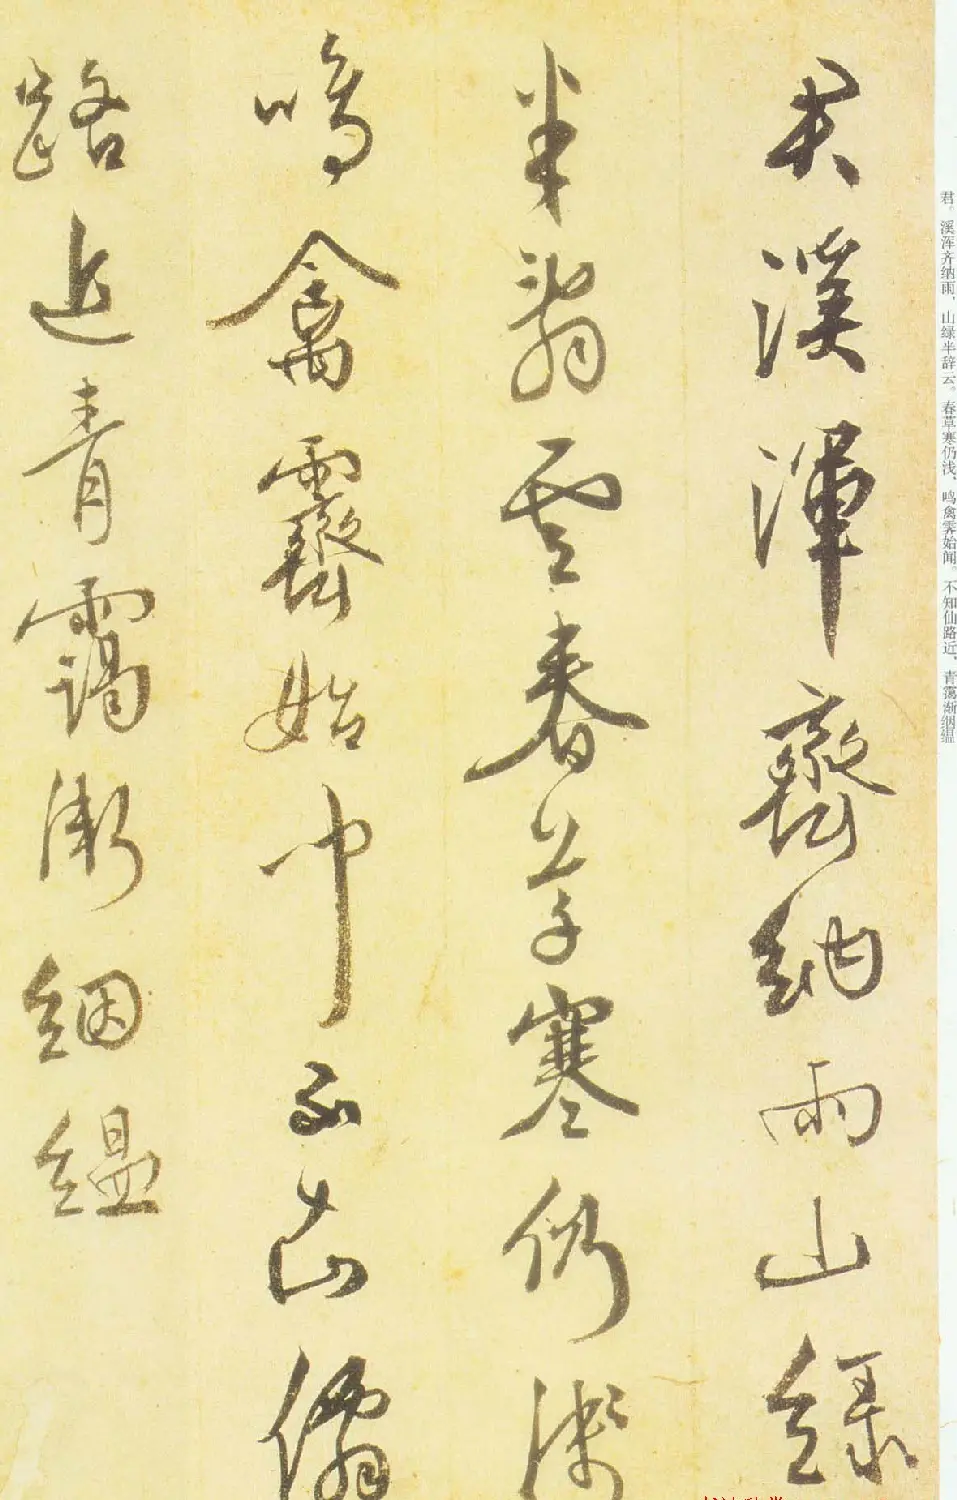 君溪渾齊納雨山綠
半辭雲春草寒仍淺
鳴禽霽始聞不知仙
路近青靄漸絪縕
君。溪浑齐纳雨，山绿半辞云。春草寒仍浅，鸣禽霁始闻。不知仙路近，青霭渐絪缊